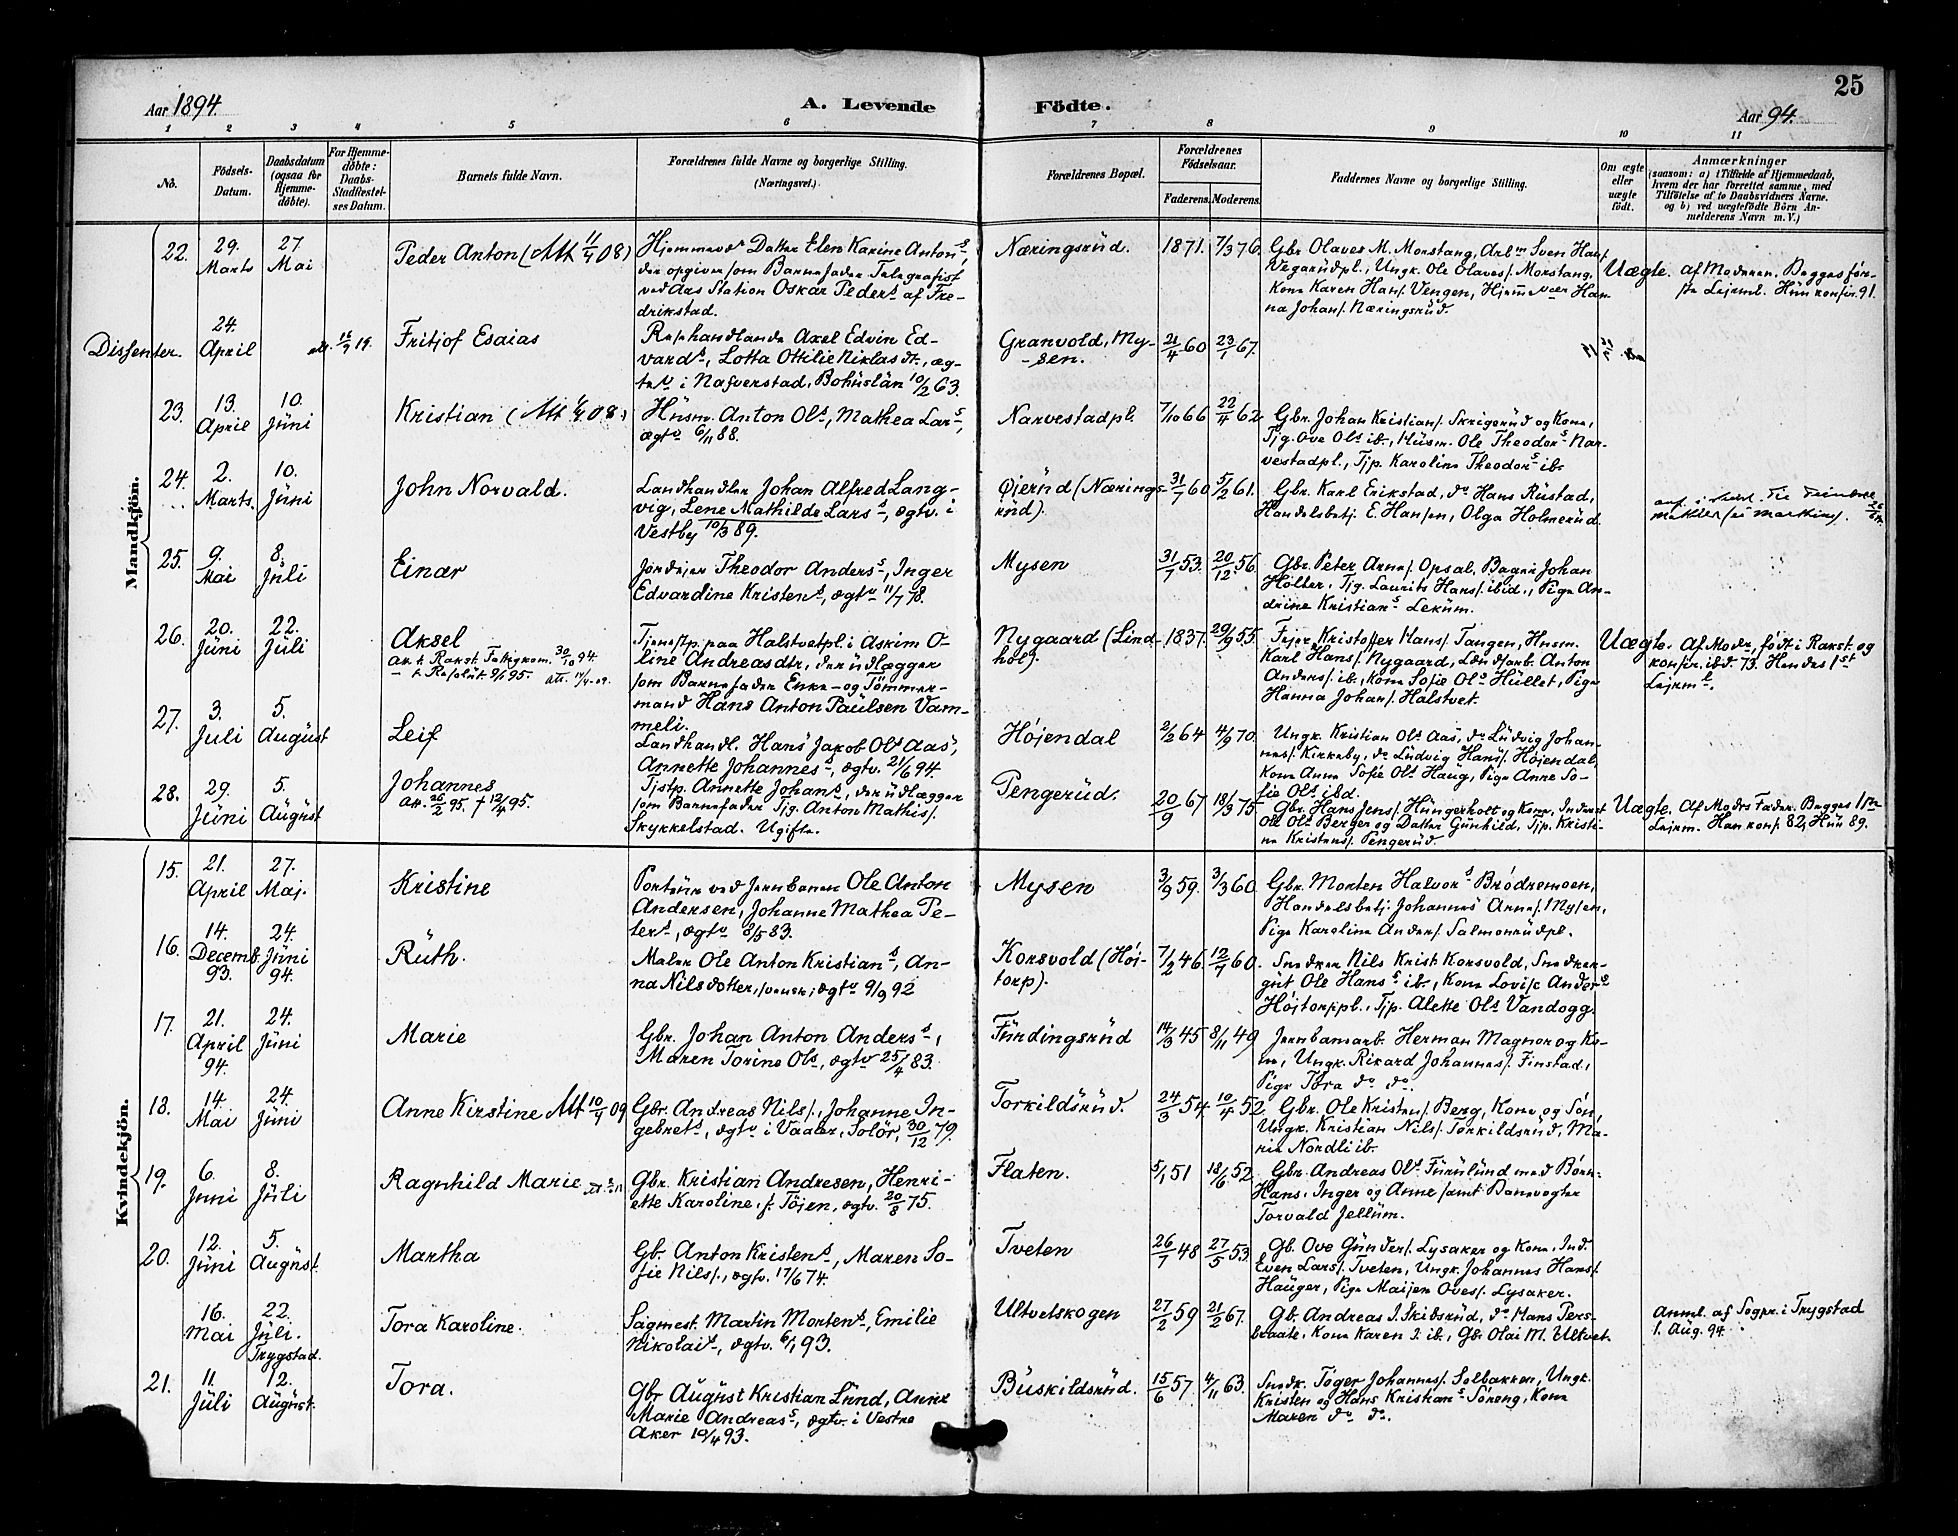 25
Aar 1894.
A. Levende Födte.
Aar 94.
1 2 3 4 5 6 7 8 9 10 11
No.
Födsels-Datum.
Daabsdatum (ogsaa for Hjemme-döbte).
For Hjemme-döbte: Daabs-Stadfæstel-ses Datum.
Barnets fulde Navn.
Forældrenes fulde Navne og borgerlige Stilling. (Næringsvei.)
Forældrenes Bopæl.
Forældrenes Födselsaar.
Faderens. Moderens.
Faddernes Navne og borgerlige Stilling.
Om ægte eller uægte födt.
Anmærkninger
(saasom: a) i Tilfælde af Hjemmedaab,
hvem der har forrettet samme, med
Tilföielse af to Daabsvidners Navne.
og b) ved uægtefödte Börn An-
melderens Navn m. V.)
Mandkjön.
22. 29. Marts 27. Mai
Peder Anton (Att 11/4 08)
Hjemmev. Datter Elen Karine Antons,
der opgiver som Barnefader Telegrafist
ved Aas Station Oskar Peders. af Fre-
drikstad.
Næringsrud.
1871. 7/3 76.
Gbr Olaves M. Monstang, Arb. Sven Hans.
Vegarudpl., Ungk. Ole Olaves. Monstang,
Kone Karen Hans. Vengen, Hjemmevær. Han-
na Johans. Næringsrud.
Uægte. af Moderen. Begges før-
ste Lejerml. Hun konfir. 91.
Dissenter. 24. April
att. 15/9 19.
Fritjof Esaias
Axel Edvin Ed-
vards, Lotta Ottilie Niklasdt., æg-
tev i Nafverstad, Bohuslän 10/2 63.
Granvold, My-
-sen.
21/4 60 23/1 67.
23. 13. April 10. Juni
Kristian (Att 1/4 08)
Husm. Anton Ols, Mathea Lars,
ægtv 6/11 88.
Narvestadpl.
7/10 66 22/4 62
Gbr. Johan Kristians. Skrigerud og Kone,
Tjg. Ove Ols ib., Husm. Ole Theodors Nar-
vestadpl., Tjp. Karoline Theodors ib.
24. 2. Marts. 10. Juni
John Norvald.
Landhandler Johan Alfred Lang-
vig, Lene Mathilde Lars, ægtv. i
Vestby 10/3 89.
Øierud (Nærings-
rud).
31/7 60 5/2 61.
Gbr. Karl Erikstad, do Hans Rustad,
Handelsbetj. E. Hansen, Olga Holmerud.
25. 9. Mai 8. Juli
Einar
Theodor Anders, Inger
Edvardine Kristens, ægtv 11/7 78.
Mysen
31/7 53. 20/12 56
Gbr. Peter Arnes. Opsal, Johan
Holter, Tjg. Laurits Hans. ibid., Pige An-
drine Kristians Lekum.
26. 20. Juni 22. Juli
Aksel
att. t. Rakst. Fattigkom. 30/10 94.
Tjenstp. paa Halstvetpl. i Askim O-
line Andreasdtr, der udlægger
som Barnefader Enke- og Tømmer-
mand Hans Anton Paulsen Vam-
meli.
Nygaard (Lind-
hol).
1837. 29/9 55.
Kristoffer Hans. Tangen, Husm.
Karl Hans. Nygaard, Landsarb. Anton
Anders. ib., Kone Sofie Ols Hullet, Pige
Hanna Johans. Halstvet.
Uægte. Af Moder, født i Rakst. og
konfir. ibid 73. Hendes 1st
Lejerml.
27. 3. Juli 5. August
Leif
Landhandl. Hans Jakob Ols Aas,
Annette Johannes, ægtv. 21/6 94.
Højendal
2/2 64 4/9 70.
Ungk. Kristian Ols Aas, do Ludvig Johan-
nes. Kirkeby, do Ludvig Hans. Højendal
Kone Anna Sofie Ols Haug, Pige Anne So-
fie Ols ibd.
28. 29. Juni 5. August
Johannes
att. 26/2 95. † 12/4 95.
Tjstp. Annette Johans, der udlægger
som Barnefader Tjg. Anton Mathis.
Skykkelstad. Ugifte.
Pengerud.
20/9 67 18/3 75.
Gbr. Hans Jens. Hungerholt og Kone, Inderst
Ole Ols Berger og Datter Gunhild, Tjp. Kristi-
ne Kristens. Pengerud.
Uægte. Af Mods Fader. Begges 1ste
Lejerm. Han konf. 82, Hun 89.
Kvindekjön.
15. 21. April 27. Maj.
Kristine
Portør ved Jernbanen Ole Anton
Andersen, Johanne Mathea Pe-
ters, ægtv 8/5 83.
Mysen
3/9 59. 3/3 60.
Gbr. Morten Halvors Brødremoen,
Handelsbetj. Johannes Arnes. Mysen,
Pige Karoline Anders. Salmonrudpl.
16. 14. Decemb. 93. 24. Juni 94.
Ruth.
Maler Ole Anton Kristians, An-
na Nilsdotter, svensk; ægtv 9/9 92
Korsvold (Høj-
torp).
7/2 46. 12/7 60.
Snedker Nils Krist Korsvold, Snedker-
gut Ole Hans ib., Kone Lovise Anders
Højtorppl., Tjp. Alette Ols Vandogg.
17. 21. April 94. 24. Juni
Marie
Gbr. Johan Anton Anders,
Maren Torine Ols, ægtv 25/4 83.
Furdingsrud
14/3 45 8/11 49
Jernbanearb. Herman Magnor og Ko-
ne, Ungk. Rikard Johannes. Finstad,
Pige Tora do do.
18. 14. Mai 24. Juni
Anne Kirstine Att 10/9 09
Gbr. Andreas Nils., Johanne In-
gebrets, ægtv i Vaaler, Solør, 30/12 79.
Torkildsrud.
24/3 54 10/4 52
Gbr. Ole Kristens. Berg, Kone og Søn,
Ungk. Kristian Nils. Torkildsrud, Ma-
rie Nordli ib.
19. 6. Juni 8. Juli
Ragnhild Marie
Gbr. Kristian Andresen, Henri-
ette Karoline, f. Tøjen, ægtv. 20/8 75.
Flaten.
5/1 51 18/6 52
Gbr. Andreas Ols Furulund med Børn-
Hans, Inger og Anne samt Banevogter
Torvald Jellum.
20. 12. Juni 5. August.
Martha
Gb. Anton Kristens, Maren So-
fie Nils., ægtv. 17/6 74.
Tveten
26/7 48 27/5 53
Gb. Ove Gunders. Lysaker og Kone, Ind.
Even Lars. Tveten, Ungk. Johannes Hans.
Hauger, Pige Maijen Oves. Lysaker.
16. Mai 22. Juli. Trygstad.
Tora Karoline.
Sagmest. Martin Mortens, Emilie
Nikolais, ægtv. 6/1 93.
Ultvetskogen
27/2 59 21/2 67.
Gb. Andreas J. Skidsrud, do Hans Pers-
braate, Kone Karen J. ib., Gbr Olai M. Ultvet.
Anml. af Sogpr. i Trygstad
1. Aug. 94.
21. 11. Juli 12. August.
Tora.
Gbr August Kristian Lund, Anne
Marie Andreas, ægtv. i Vestre
Aker 19/4 93.
Buskildsrud.
15/6 57. 4/11 63.
Snedk. Tøger Johannes. Solbakken, Ungk.
Kristen og Hans Kristians Søreng, Kone
Maren do do.